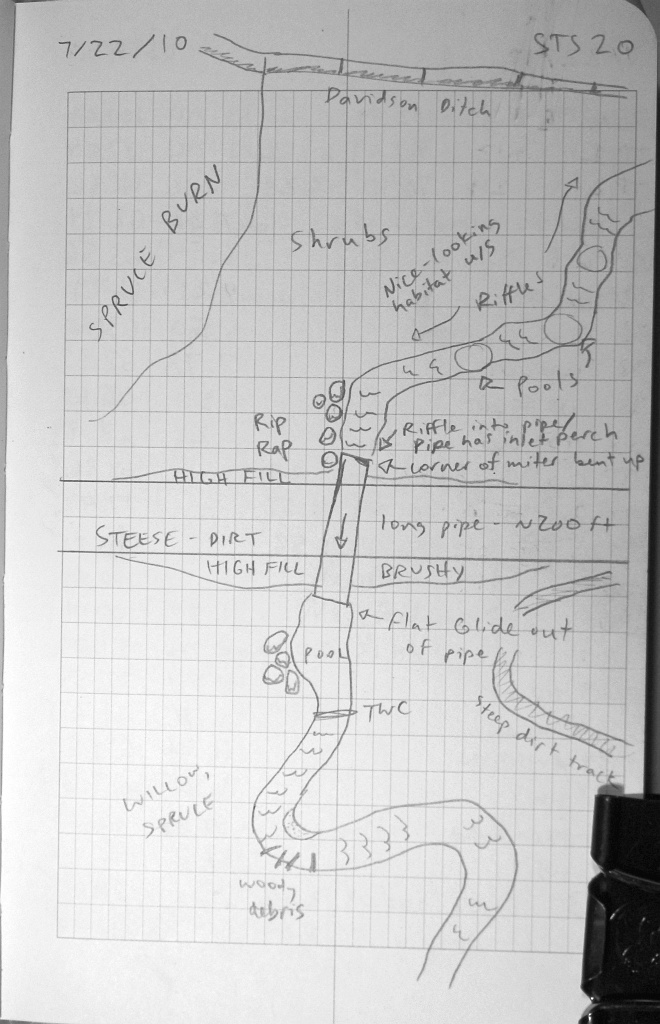 7/22/10
STS 20
Davidson Ditch
SPRUCE BURN
Shrubs
Nice-looking
habitat u/s
Riffles
Pools
Rip
Rap
Riffle into pipe/
pipe has inlet perch
corner of miter bent up
HIGH FILL
long pipe - ~200 ft
STEESE - DIRT
HIGH FILL
BRUSHY
flat Glide out
of pipe
POOL
TWC
steep dirt track
WILLOW,
SPRUCE
woody
debris